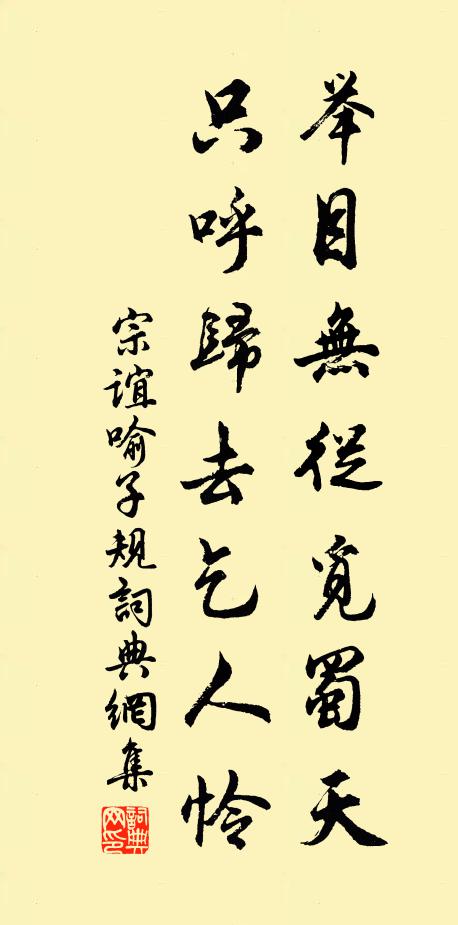 举目無從覓蜀天
只呼歸去乞人怜
宗谊喻子规詞典網集
詞典网印